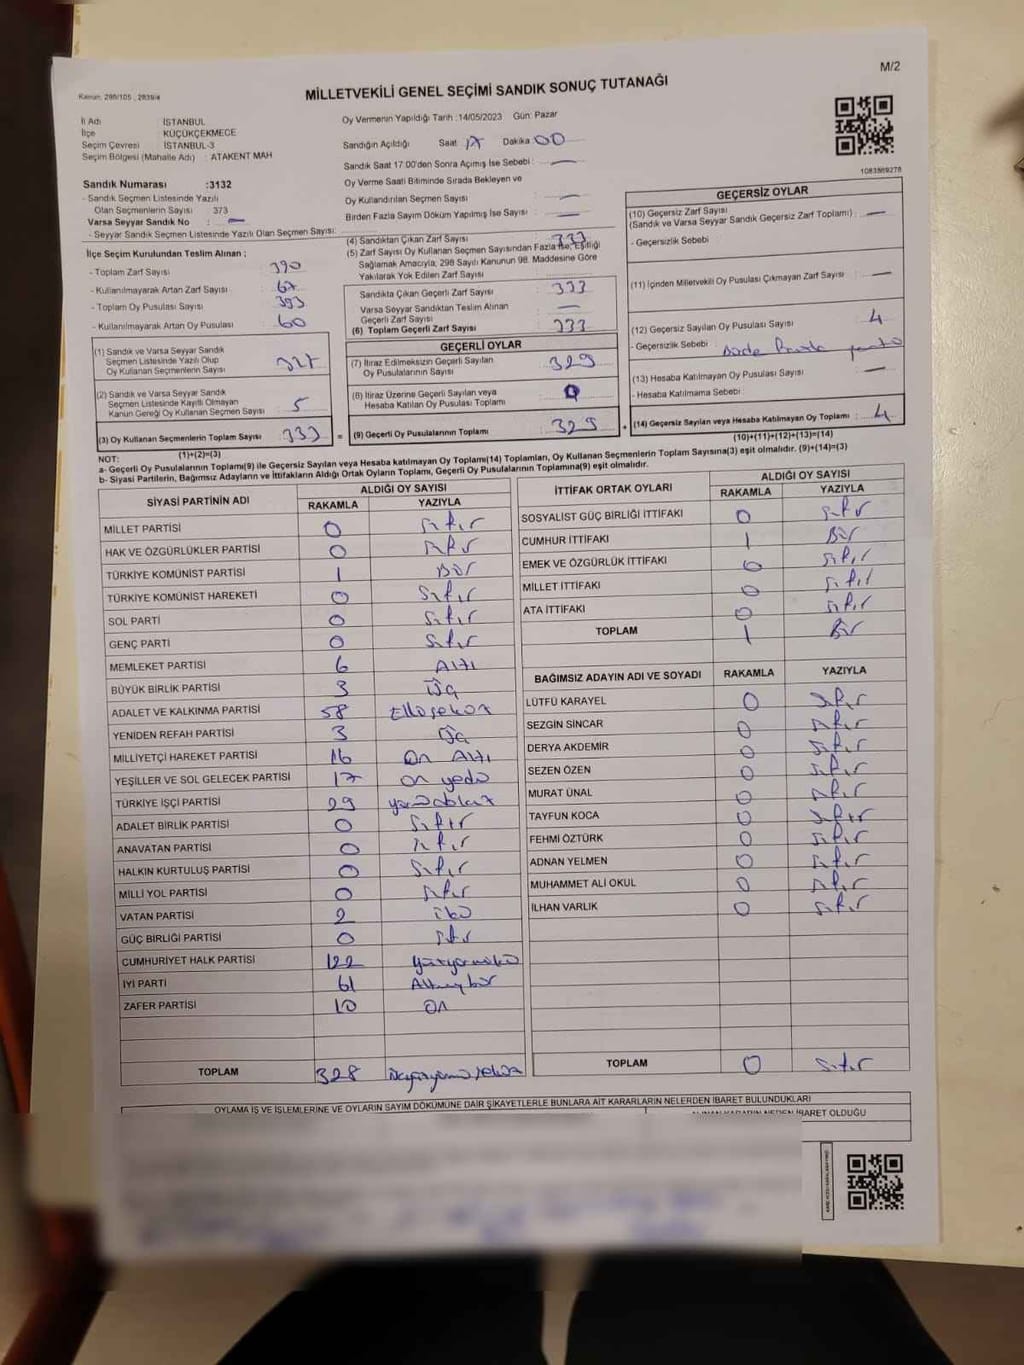 M/2
Kanun: 298/105 , 2839/4
MİLLETVEKİLİ GENEL SEÇİMİ SANDIK SONUÇ TUTANAĞI
İl Adı : İSTANBUL
İlçe : KÜÇÜKÇEKMECE
Seçim Çevresi : İSTANBUL-3
Seçim Bölgesi (Mahalle Adı) : ATAKENT MAH
Sandık Numarası :3132
- Sandık Seçmen Listesinde Yazılı
Olan Seçmenlerin Sayısı 373
Varsa Seyyar Sandık No : —
- Seyyar Sandık Seçmen Listesinde Yazılı Olan Seçmen Sayısı:
Oy Vermenin Yapıldığı Tarih :14/05/2023 Gün: Pazar
Sandığın Açıldığı Saat 17 Dakika 00
Sandık Saat 17:00'den Sonra Açılmış İse Sebebi : —
Oy Verme Saati Bitiminde Sırada Bekleyen ve
Oy Kullandırılan Seçmen Sayısı : —
Birden Fazla Sayım Döküm Yapılmış İse Sayısı : —
1083569276
İlçe Seçim Kurulundan Teslim Alınan ;
- Toplam Zarf Sayısı : 390
- Kullanılmayarak Artan Zarf Sayısı : 67
- Toplam Oy Pusulası Sayısı : 393
- Kullanılmayarak Artan Oy Pusulası : 60
(1) Sandık ve Varsa Seyyar Sandık
Seçmen Listesinde Yazılı Olup
Oy Kullanan Seçmenlerin Sayısı :
(2) Sandık ve Varsa Seyyar Sandık
Seçmen Listesinde Kayıtlı Olmayan
Kanun Gereği Oy Kullanan Seçmen Sayısı : 5
(3) Oy Kullanan Seçmenlerin Toplam Sayısı : 333 =
(1)+(2)=(3)
(4) Sandıktan Çıkan Zarf Sayısı : 333
(5) Zarf Sayısı Oy Kullanan Seçmen Sayısından Fazla İse, Eşitliği
Sağlamak Amacıyla, 298 Sayılı Kanunun 98. Maddesine Göre
Yakılarak Yok Edilen Zarf Sayısı : —
Sandıkta Çıkan Geçerli Zarf Sayısı : 333
Varsa Seyyar Sandıktan Teslim Alınan
Geçerli Zarf Sayısı : —
(6) Toplam Geçerli Zarf Sayısı : 333
GEÇERLİ OYLAR
(7) İtiraz Edilmeksizin Geçerli Sayılan
Oy Pusulalarının Sayısı : 329
(8) İtiraz Üzerine Geçerli Sayılan veya
Hesaba Katılan Oy Pusulası Toplamı : 0
(9) Geçerli Oy Pusulalarının Toplamı : 329 +
GEÇERSİZ OYLAR
(10) Geçersiz Zarf Sayısı
(Sandık ve Varsa Seyyar Sandık Geçersiz Zarf Toplamı) : —
- Geçersizlik Sebebi
(11) İçinden Milletvekili Oy Pusulası Çıkmayan Zarf Sayısı : —
(12) Geçersiz Sayılan Oy Pusulası Sayısı : 4
- Geçersizlik Sebebi :
(13) Hesaba Katılmayan Oy Pusulası Sayısı : —
- Hesaba Katılmama Sebebi
(14) Geçersiz Sayılan veya Hesaba Katılmayan Oy Toplamı : 4
(10)+(11)+(12)+(13)=(14)
NOT:
a- Geçerli Oy Pusulalarının Toplamı(9) ile Geçersiz Sayılan veya Hesaba katılmayan Oy Toplamı(14) Toplamları, Oy Kullanan Seçmenlerin Toplam Sayısına(3) eşit olmalıdır. (9)+(14)=(3)
b- Siyasi Partilerin, Bağımsız Adayların ve İttifakların Aldığı Ortak Oyların Toplamı, Geçerli Oy Pusulalarının Toplamına(9) eşit olmalıdır.
SİYASİ PARTİNİN ADI ALDIĞI OY SAYISI
RAKAMLA YAZIYLA
MİLLET PARTİSİ 0 sıfır
HAK VE ÖZGÜRLÜKLER PARTİSİ 0 sıfır
TÜRKİYE KOMÜNİST PARTİSİ 1 Bir
TÜRKİYE KOMÜNİST HAREKETİ 0 Sıfır
SOL PARTİ 0 Sıfır
GENÇ PARTİ 0 Sıfır
MEMLEKET PARTİSİ 6 Altı
BÜYÜK BİRLİK PARTİSİ 3 Üç
ADALET VE KALKINMA PARTİSİ 58 Ellisekiz
YENİDEN REFAH PARTİSİ 3 Üç
MİLLİYETÇİ HAREKET PARTİSİ 16 On Altı
YEŞİLLER VE SOL GELECEK PARTİSİ 17 on yedi
TÜRKİYE İŞÇİ PARTİSİ 29
ADALET BİRLİK PARTİSİ 0 Sıfır
ANAVATAN PARTİSİ 0 sıfır
HALKIN KURTULUŞ PARTİSİ 0 Sıfır
MİLLİ YOL PARTİSİ 0 sıfır
VATAN PARTİSİ 2 iki
GÜÇ BİRLİĞİ PARTİSİ 0 sıfır
CUMHURİYET HALK PARTİSİ 122 yüzyirmiiki
İYİ PARTİ 61 Altmışbir
ZAFER PARTİSİ 10 On
TOPLAM 328 üçyüzyirmisekiz
İTTİFAK ORTAK OYLARI ALDIĞI OY SAYISI
RAKAMLA YAZIYLA
SOSYALİST GÜÇ BİRLİĞİ İTTİFAKI 0 sıfır
CUMHUR İTTİFAKI 1 Bir
EMEK VE ÖZGÜRLÜK İTTİFAKI 0 sıfır
MİLLET İTTİFAKI 0 sıfır
ATA İTTİFAKI 0 sıfır
TOPLAM 1 Bir
BAĞIMSIZ ADAYIN ADI VE SOYADI RAKAMLA YAZIYLA
LÜTFÜ KARAYEL 0 sıfır
SEZGİN SİNCAR 0 sıfır
DERYA AKDEMİR 0 sıfır
SEZEN ÖZEN 0 sıfır
MURAT ÜNAL 0 sıfır
TAYFUN KOCA 0 sıfır
FEHMİ ÖZTÜRK 0 sıfır
ADNAN YELMEN 0 sıfır
MUHAMMET ALİ OKUL 0 sıfır
İLHAN VARLIK 0 sıfır
TOPLAM 0 sıfır
OYLAMA İŞ VE İŞLEMLERİNE VE OYLARIN SAYIM DÖKÜMÜNE DAİR ŞİKAYETLERLE BUNLARA AİT KARARLARIN NELERDEN İBARET BULUNDUKLARI
ALINAN KARARIN NEDEN İBARET OLDUĞU